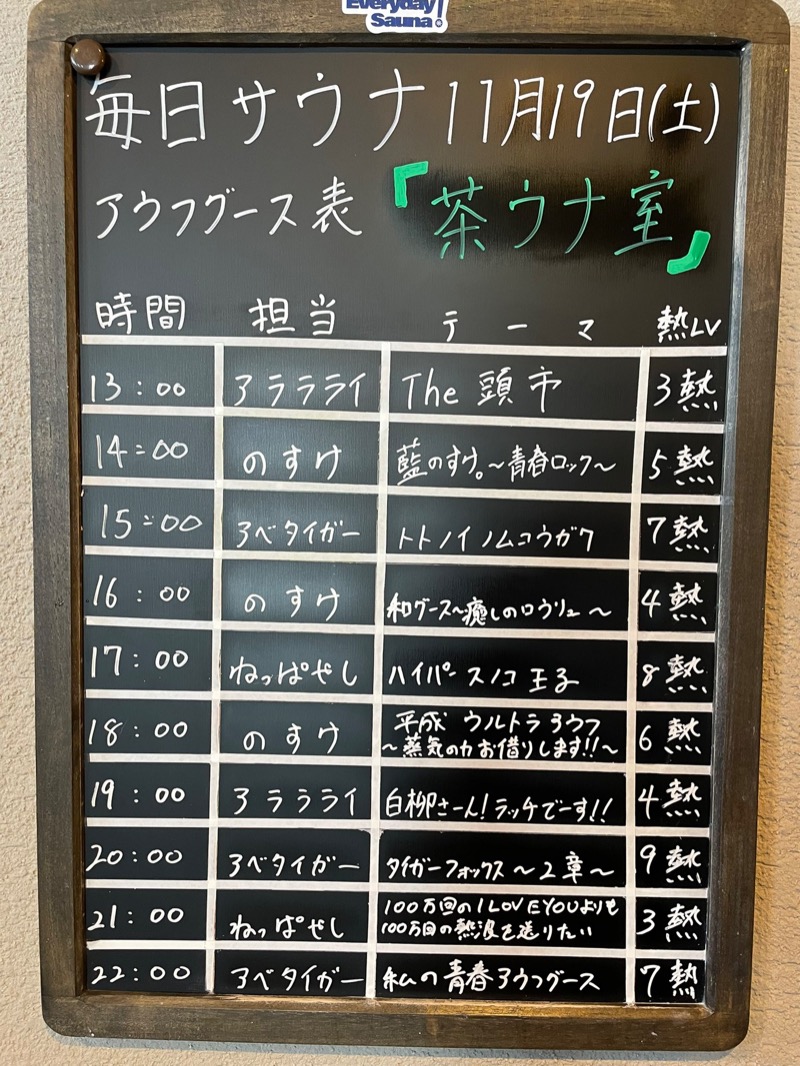 Everyday
Sauna!
毎日サウナ 11月19日(土)
アウフグース表 「茶ウナ室」
時間 担当 テーマ 熱LV
13:00 アラララライ The 頭市 3熱
14:00 のすけ 藍のすけ。〜青春ロック〜 5熱
15:00 アベタイガー トトノイノムコウガワ 7熱
16:00 のすけ 和グース〜癒しのロウリュ〜 4熱
17:00 ねっぱせし ハイパースノコ王子 8熱
18:00 のすけ 平成 ウルトラアウフ
〜蒸気の力お借りします!!〜 6熱
19:00 アラララライ 白柳さーん!ラッチでーす!! 4熱
20:00 アベタイガー タイガーフォックス 〜2章〜 9熱
21:00 ねっぱせし 100万回のI LOVE YOUよりも
100万回の熱波を送りたい 3熱
22:00 アベタイガー 私の青春アウフグース 7熱